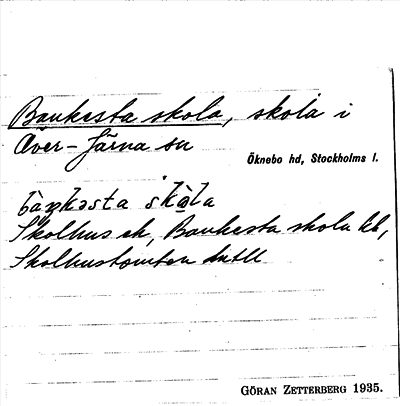 Bankesta skola, skola i
Över-Järna sn
Öknebo hd, Stockholms l.
bàŋkəsta skɷ̀la
Skolhus ek, Bankesta skola kb,
Skolhustomten
GÖRAN ZETTERBERG 1935.